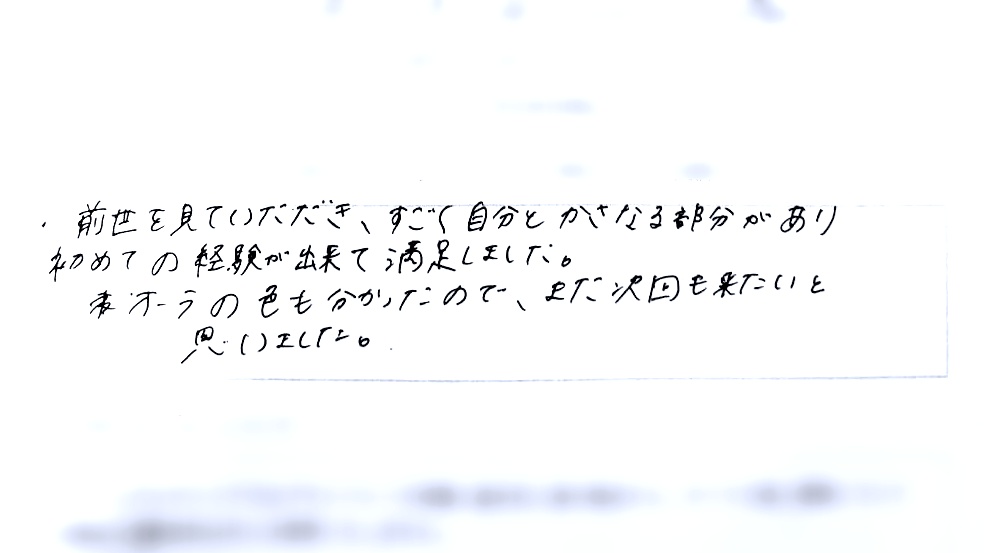 ・前世を見ていただき、すごく自分とかさなる部分があり
初めての経験が出来て満足しました。
オーラの色も分かったので、また次回も来たいと
思いました。